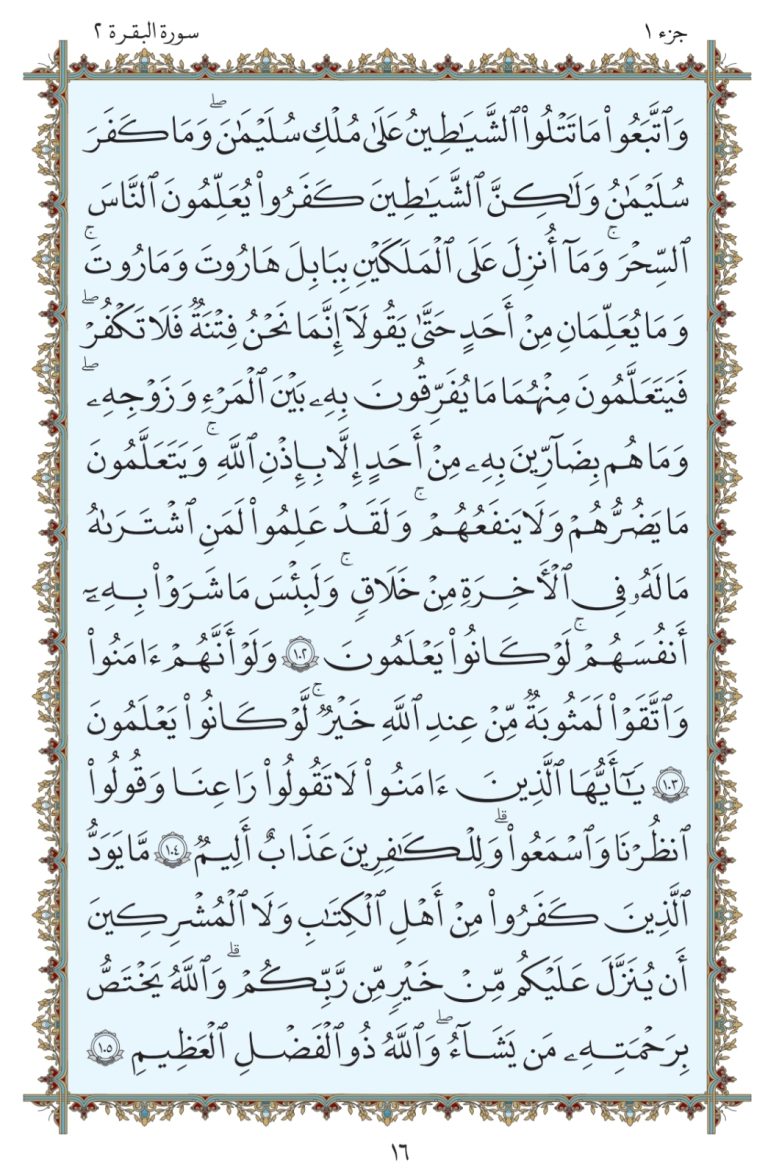 جزء ١
سورة البقرة ٢
وَٱتَّبَعُوا۟ مَا تَتْلُوا۟ ٱلشَّيَـٰطِينُ عَلَىٰ مُلْكِ سُلَيْمَـٰنَ ۖ وَمَا كَفَرَ
سُلَيْمَـٰنُ وَلَـٰكِنَّ ٱلشَّيَـٰطِينَ كَفَرُوا۟ يُعَلِّمُونَ ٱلنَّاسَ
ٱلسِّحْرَ ۚ وَمَآ أُنزِلَ عَلَى ٱلْمَلَكَيْنِ بِبَابِلَ هَارُوتَ وَمَارُوتَ ۚ
وَمَا يُعَلِّمَانِ مِنْ أَحَدٍ حَتَّىٰ يَقُولَآ إِنَّمَا نَحْنُ فِتْنَةٌ فَلَا تَكْفُرْ ۖ
فَيَتَعَلَّمُونَ مِنْهُمَا مَا يُفَرِّقُونَ بِهِۦ بَيْنَ ٱلْمَرْءِ وَزَوْجِهِۦ ۖ
وَمَا هُم بِضَآرِّينَ بِهِۦ مِنْ أَحَدٍ إِلَّا بِإِذْنِ ٱللَّهِ ۚ وَيَتَعَلَّمُونَ
مَا يَضُرُّهُمْ وَلَا يَنفَعُهُمْ ۚ وَلَقَدْ عَلِمُوا۟ لَمَنِ ٱشْتَرَىٰهُ
مَا لَهُۥ فِى ٱلْـَٔاخِرَةِ مِنْ خَلَـٰقٍ ۚ وَلَبِئْسَ مَا شَرَوْا۟ بِهِۦٓ
أَنفُسَهُمْ ۚ لَوْ كَانُوا۟ يَعْلَمُونَ ١٠٢ وَلَوْ أَنَّهُمْ ءَامَنُوا۟
وَٱتَّقَوْا۟ لَمَثُوبَةٌ مِّنْ عِندِ ٱللَّهِ خَيْرٌ ۚ لَّوْ كَانُوا۟ يَعْلَمُونَ
١٠٣ يَـٰٓأَيُّهَا ٱلَّذِينَ ءَامَنُوا۟ لَا تَقُولُوا۟ رَٰعِنَا وَقُولُوا۟
ٱنظُرْنَا وَٱسْمَعُوا۟ ۗ وَلِلْكَـٰفِرِينَ عَذَابٌ أَلِيمٌ ١٠٤ مَّا يَوَدُّ
ٱلَّذِينَ كَفَرُوا۟ مِنْ أَهْلِ ٱلْكِتَـٰبِ وَلَا ٱلْمُشْرِكِينَ
أَن يُنَزَّلَ عَلَيْكُم مِّنْ خَيْرٍ مِّن رَّبِّكُمْ ۗ وَٱللَّهُ يَخْتَصُّ
بِرَحْمَتِهِۦ مَن يَشَآءُ ۖ وَٱللَّهُ ذُو ٱلْفَضْلِ ٱلْعَظِيمِ ١٠٥
١٦